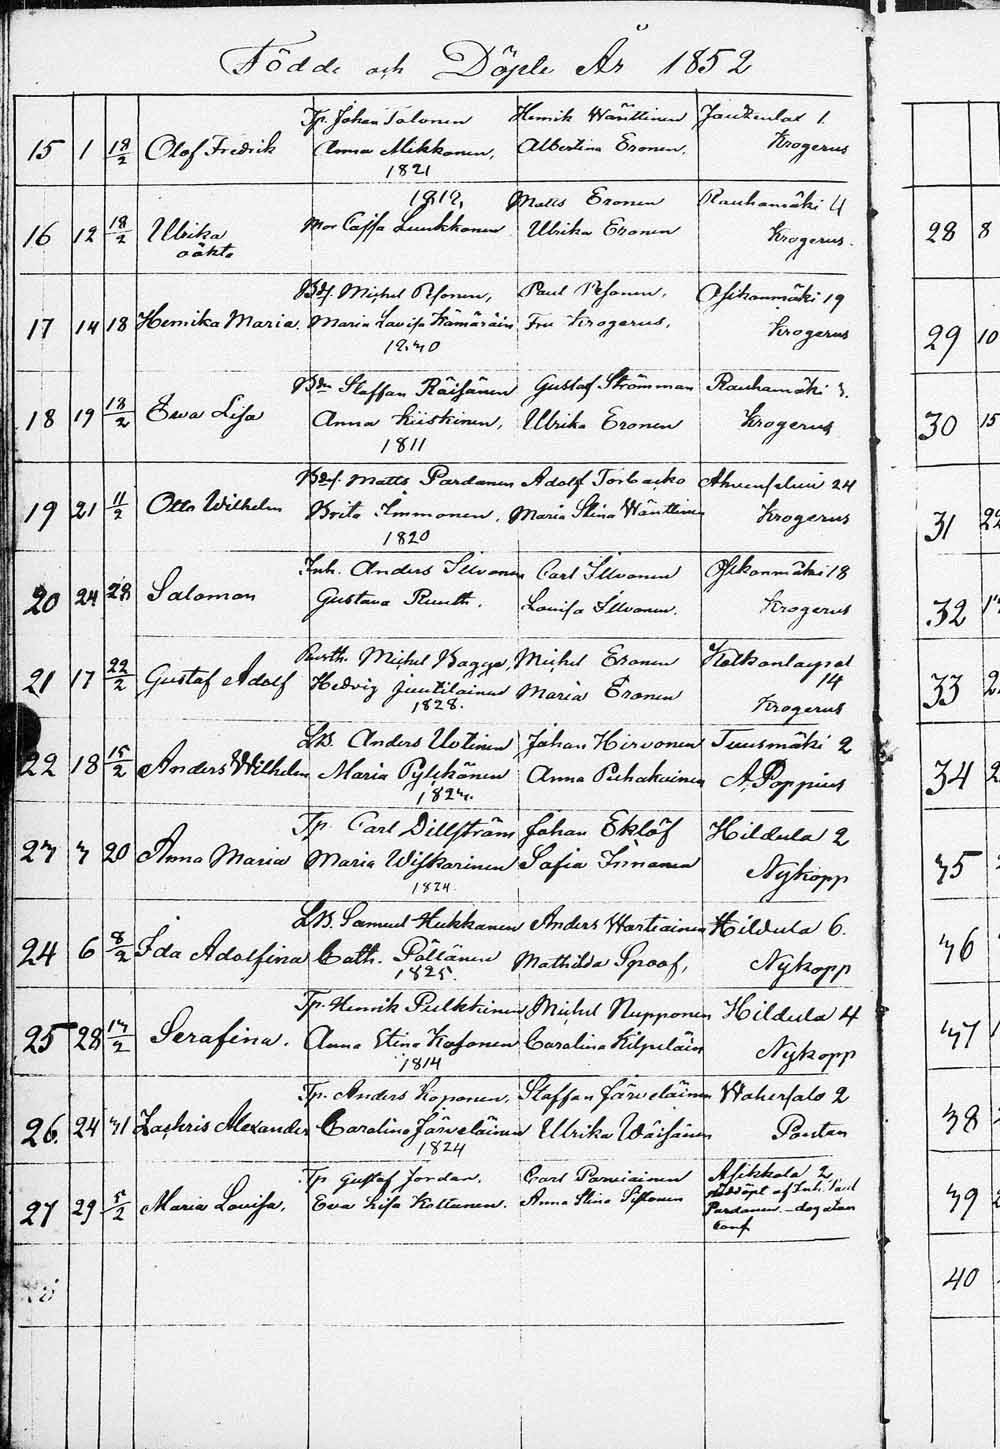 Födde och Döpte År 1852
15 1 18/2 Olof Fredrik Tp. Johan Talonen Henrik Wänttinen Jauhenlax 1.
Anna Mikkonen, Albertina Eronen. Krogerus
1821
1819, Matts Eronen Rauhamäki 4
16 12 18/2 Ulrika Mor Cajsa Luukkonen Ulrika Eronen Krogerus.
oäkta
Bds. Michel Paul Osikonmäki 19
17 14 18 Henrika Maria. Maria Lovisa Hämäräin Fru Krogerus. Krogerus
Bdn Staffan Räisänen Gustaf Strömman Rauhamäki 3.
18 19 18/2 Ewa Lisa Anna Kiiskinen, Ulrika Eronen Krogerus
1811
Bds. Matts Pardanen Adolf 24
19 21 11/2 Otto Wilhelm Brita Immonen. Maria Stina Wänttinen Krogerus
1820
Inh. Anders Ilvonen Carl Ilvonen Osikonmäki 18
20 24 28 Salomon Gustava Ruuth. Lovisa Ilvonen. Krogerus
Michel Bagge, Michel Eronen
21 17 22/2 Gustaf Adolf Hedvig Juutilainen Maria Eronen 14
1828. Krogerus
Anders Uotinen Johan Hirvonen Tuusmäki 2
22 18 15/2 Anders Wilhelm Maria Pylkkänen Anna Puhakainen A. Poppius
Tp. Carl Dillström Johan Eklöf Hildula 2
23 3 20 Anna Maria Maria Wiskarinen Sofia Nykopp
1824.
Samuel Hukkanen Anders Wartiainen Hildula 6.
24 6 8/2 Ida Adolfina Cath. Pöllänen Mathilda Sproof, Nykopp
1825.
Tp. Henrik Pulkkinen Michel Nupponen Hildula 4
25 28 13/2 Serafina. Anna Stina Kosonen Carolina Kilpeläin Nykopp
1814
Tp. Anders Koponen. Staffan Järveläinen Wahersalo 2
26. 24 31 Zachris Alexander Carolina Järveläinen Ulrika Wäisänen Pontan
1824
Tp Gustaf Jordan. Carl Parviainen Asikkala 2
27 29 5/2 Maria Lovisa. Eva Lisa Kottanen. Anna Stina nöddöpt af Inh. Paul
Pardanen - dog utan
conf
28 8
29 10
30 15
31 22
32
33
34
35
36
37
38
39
40